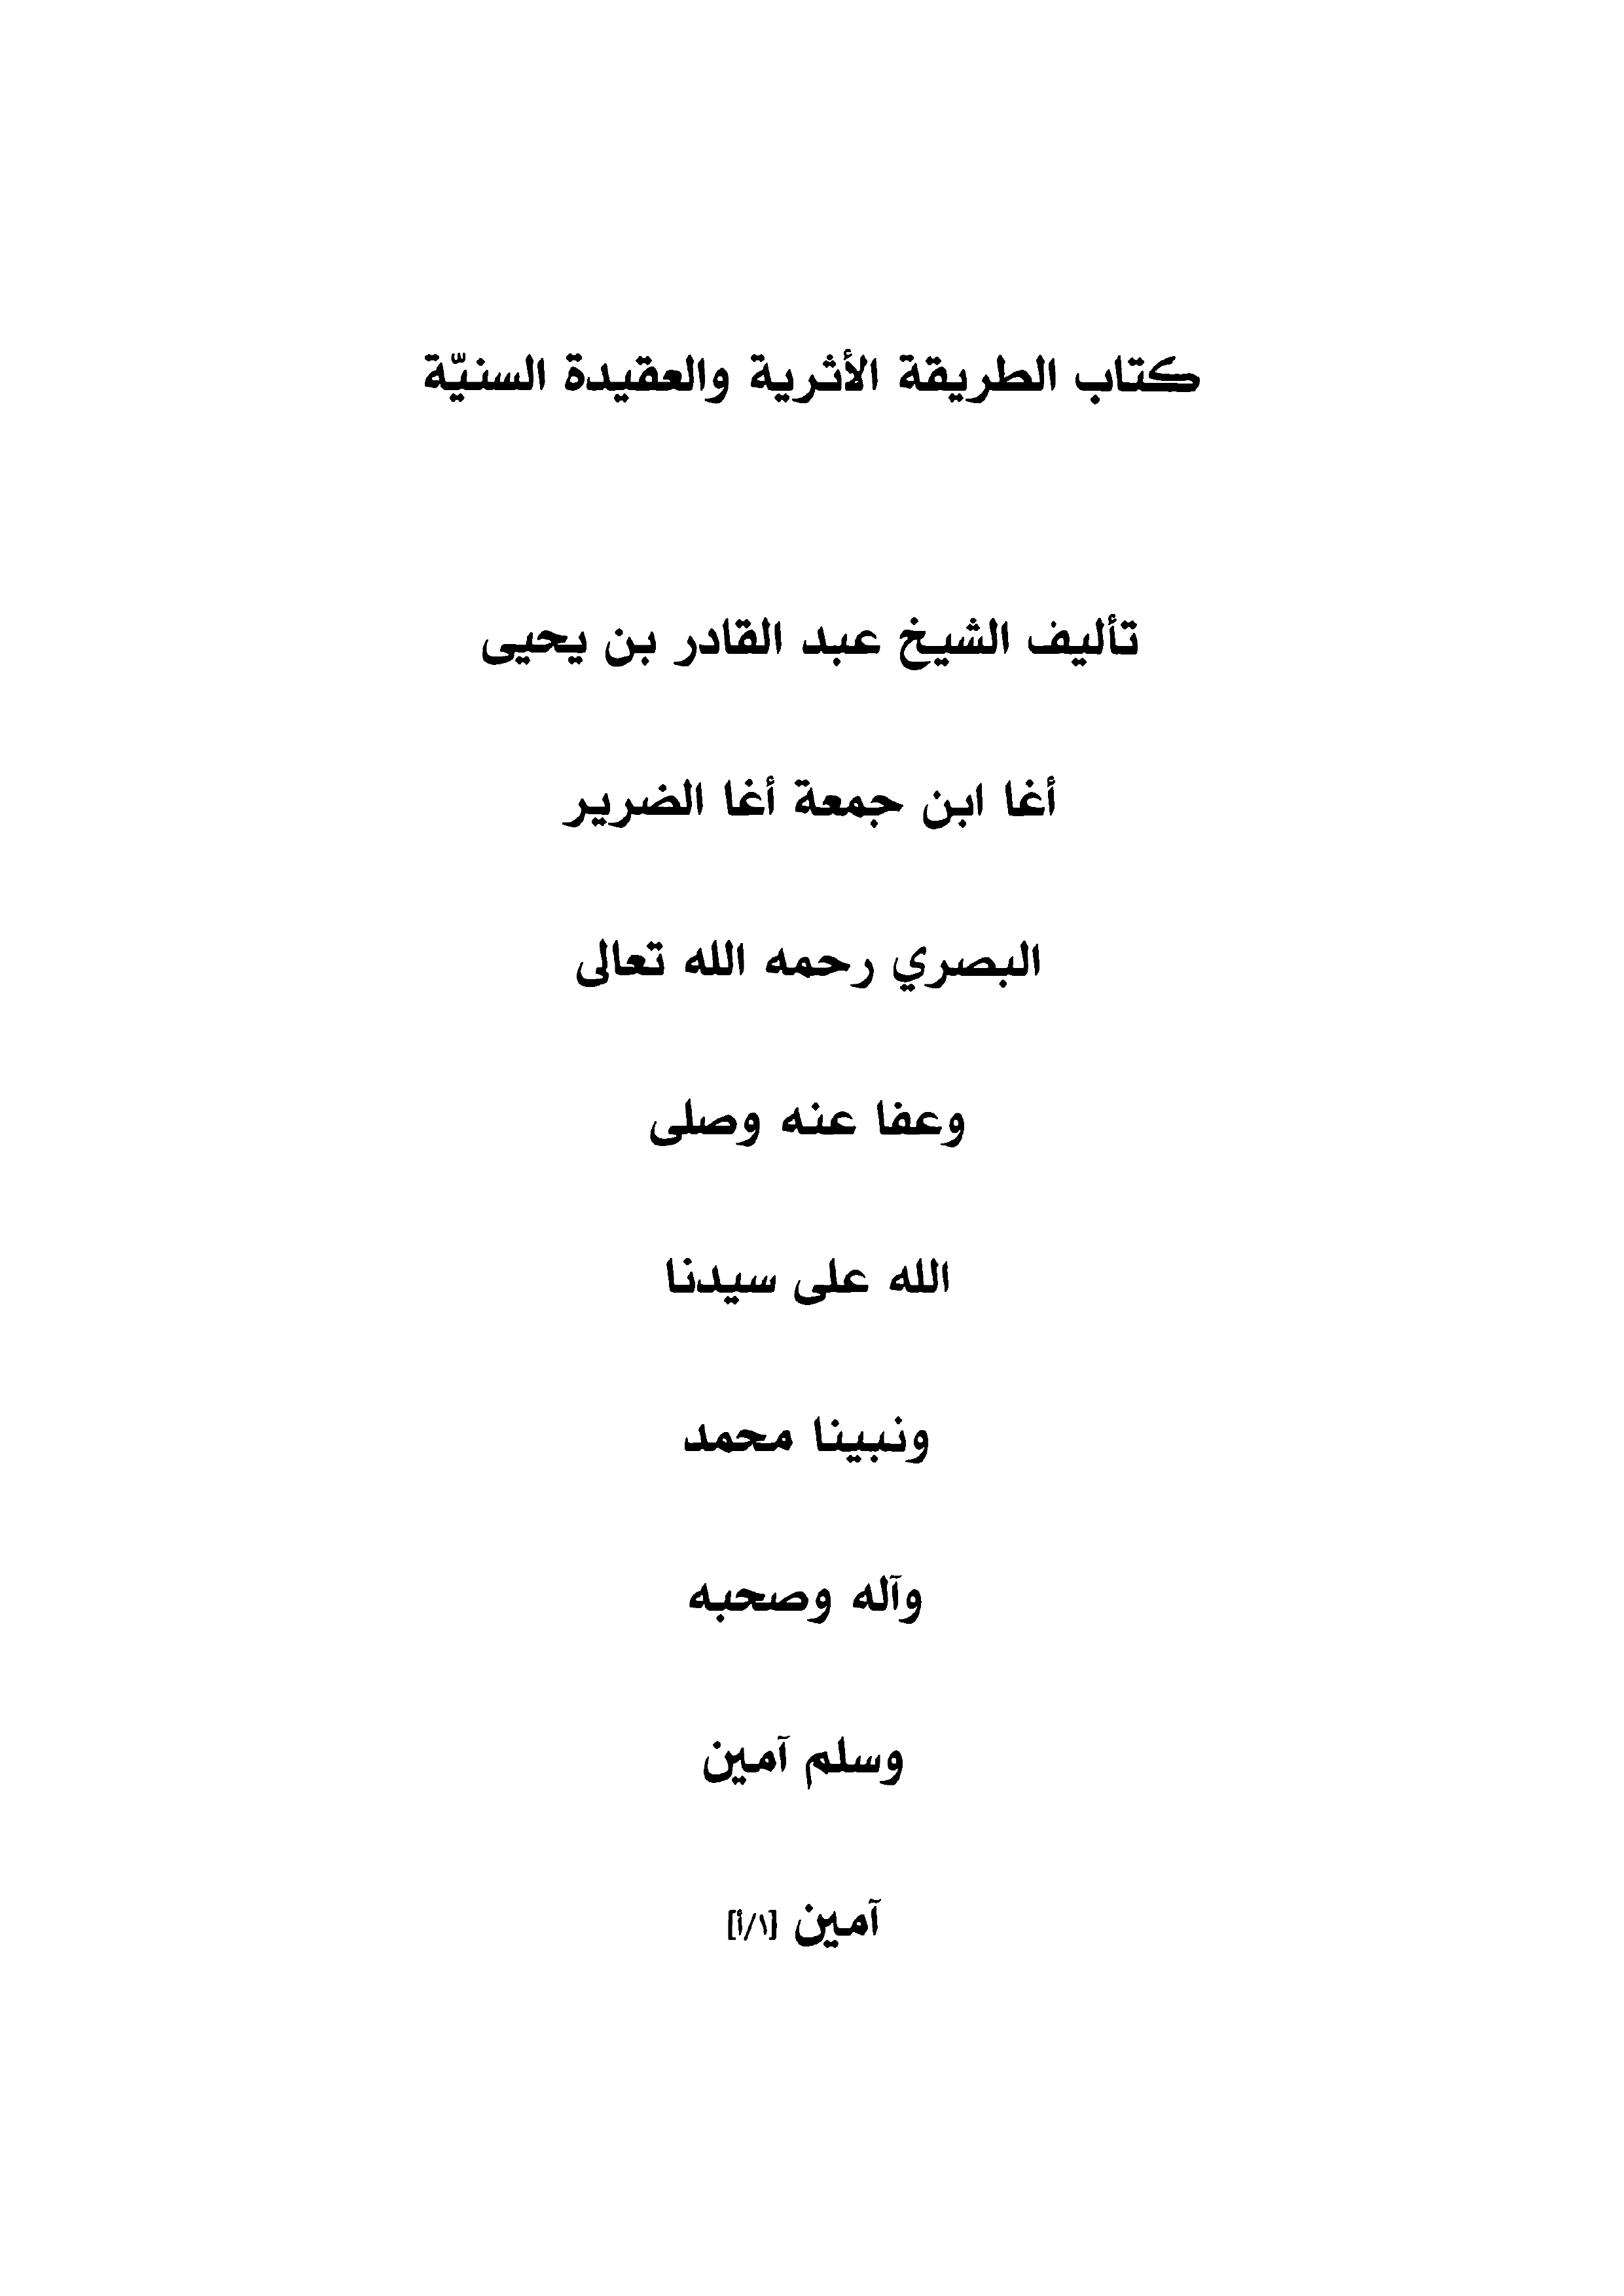 كتاب الطريقة الأثرية والعقيدة السنيّة
تأليف الشيخ عبد القادر بن يحيى
أغا ابن جمعة أغا الضرير
البصري رحمه الله تعالى
وعفا عنه وصلى
الله على سيدنا
ونبينا محمد
وآله وصحبه
وسلم آمين
آمين [١/أ]